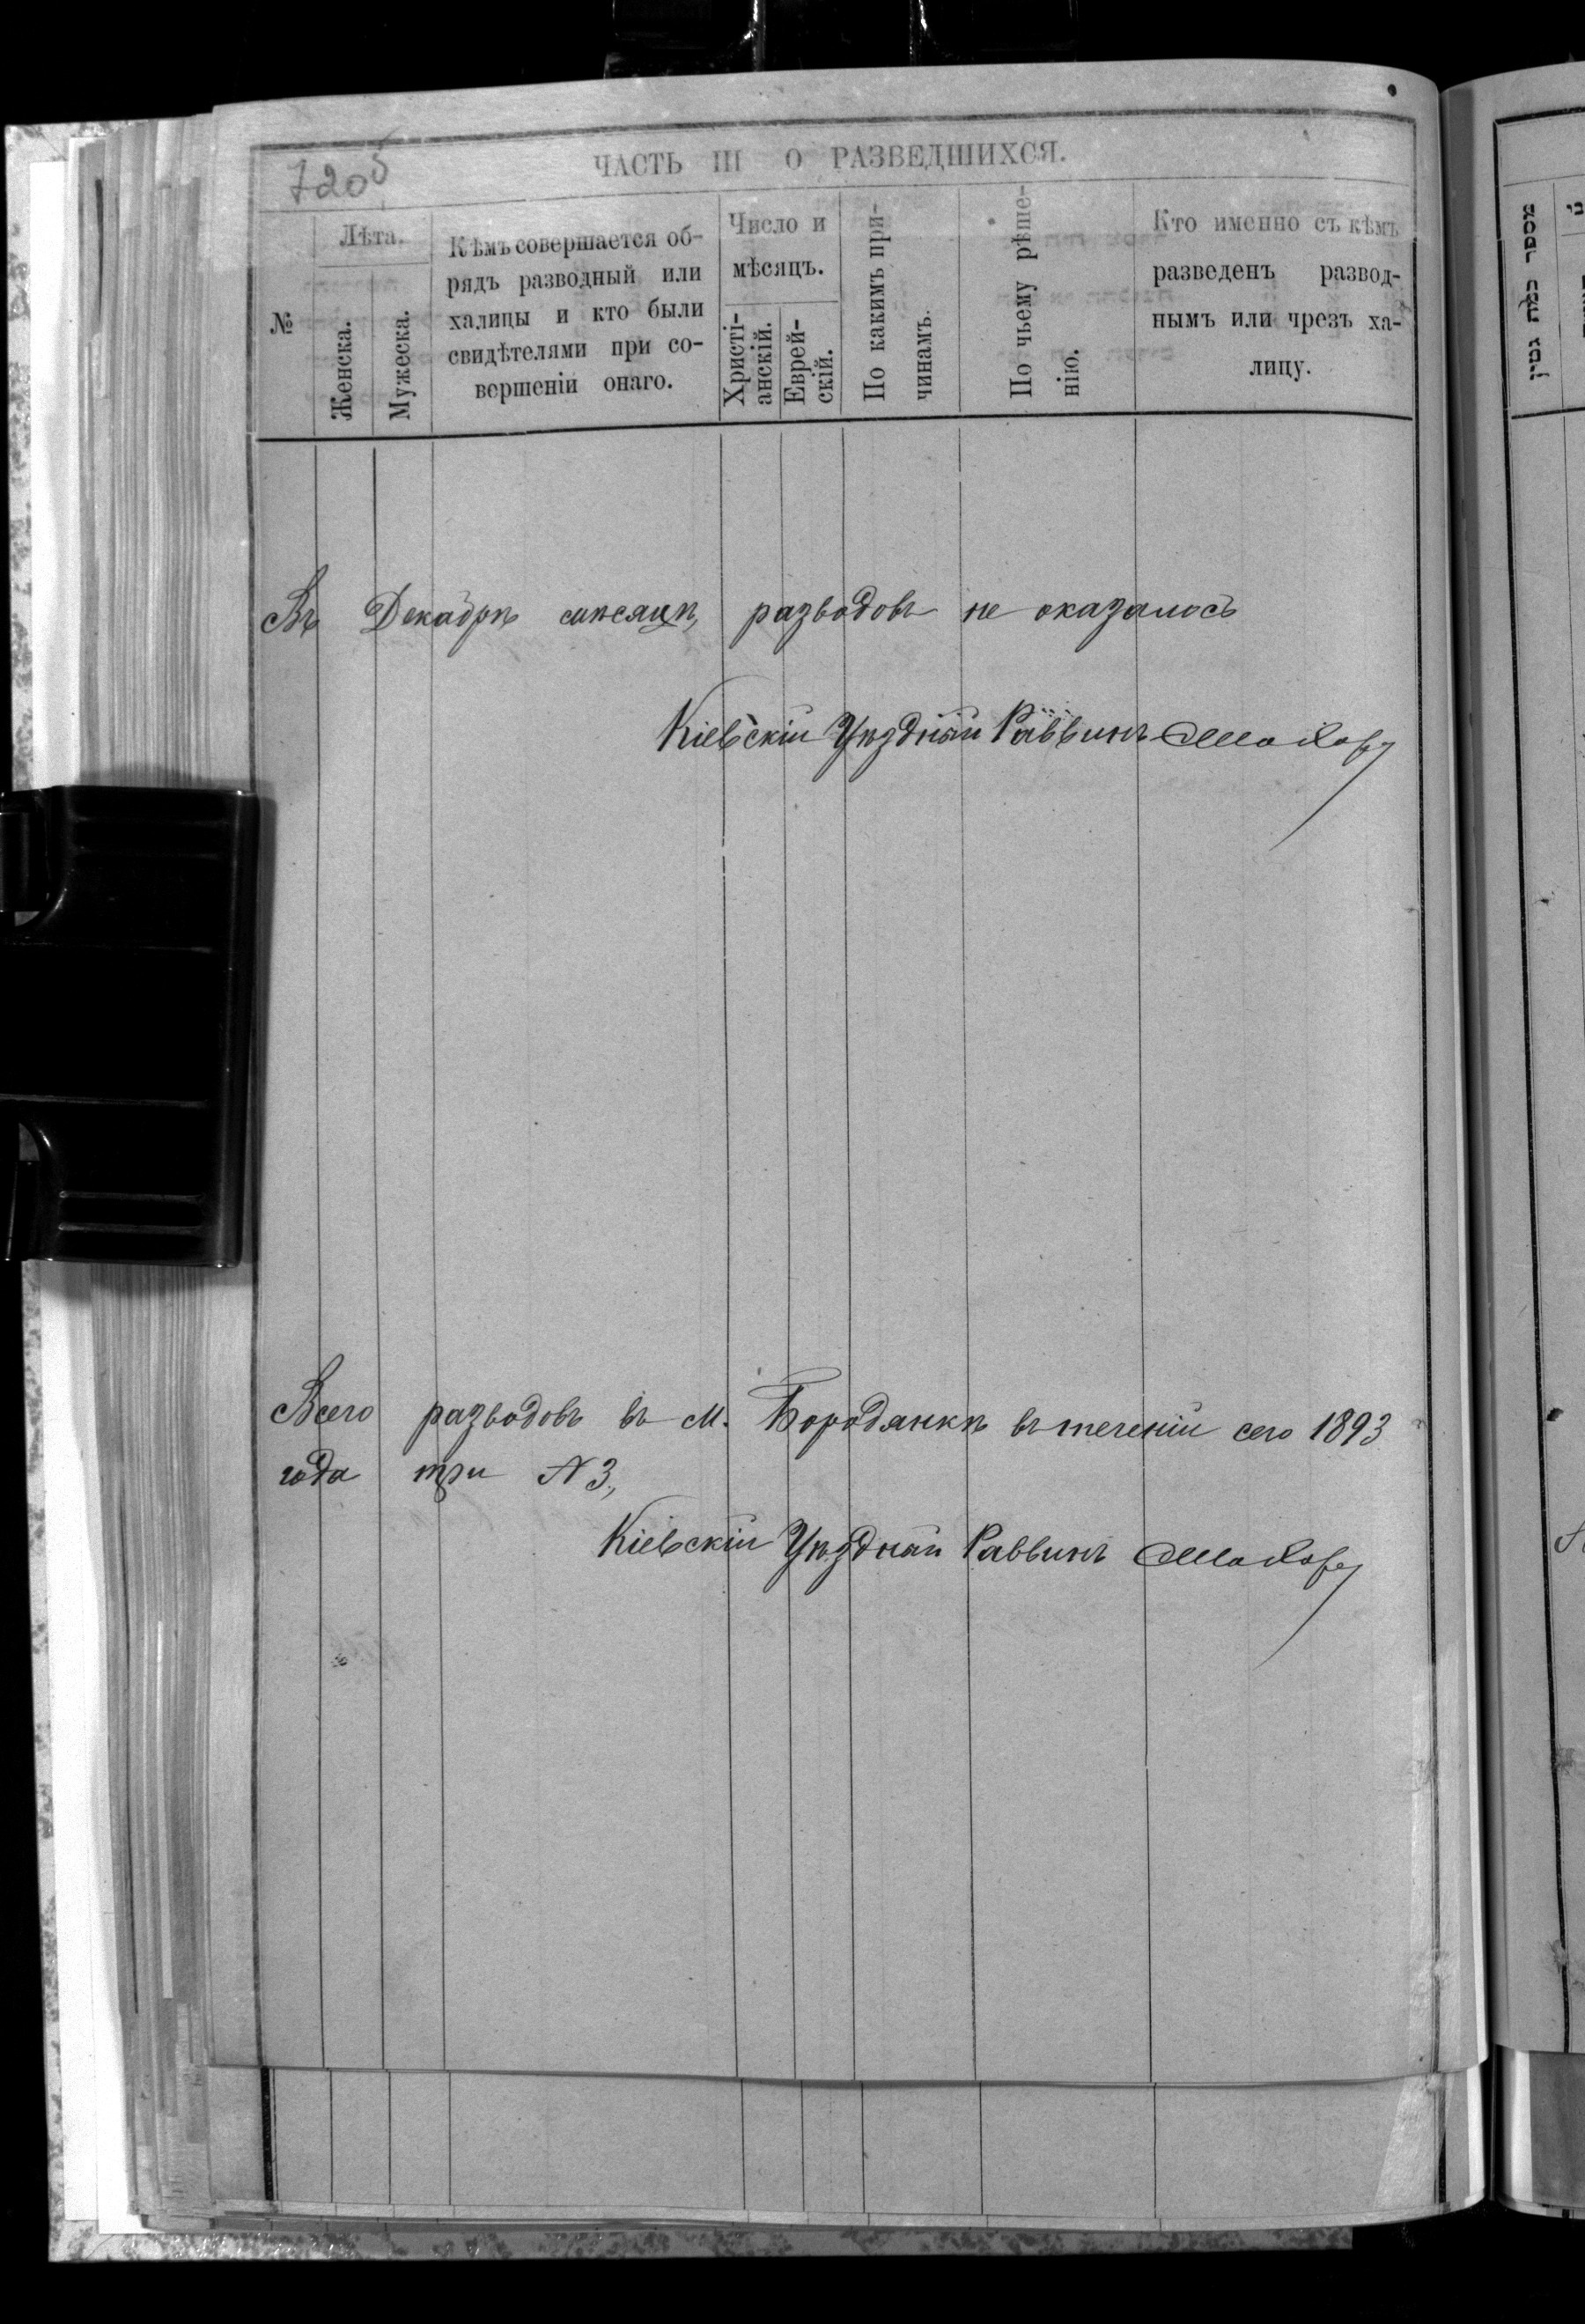 720б
ЧАСТЬ III О РАЗВЕДШИХСЯ.
№
Лѣта.
Женска.
Мужеска.
Кѣмъ совершается об-
рядъ разводный или
халицы и кто были
свидѣтелями при со-
вершеніи онаго.
Число и
мѣсяцъ.
Христі-
анскій.
Еврей-
скій.
По какимъ при-
чинамъ.
По чьему рѣше-
нію.
Кто именно съ кѣмъ
разведенъ развод-
нымъ или чрезъ ха-
лицу.
מספר כמה גטין
Въ Декабрѣ мѣсяцѣ, разводовъ не оказалось
Кіевскій Уѣздный Раввинъ
Всего разводовъ въ м. Бородянкѣ въ теченіи сего 1893
года три № 3,
Кіевскій Уѣздный Раввинъ